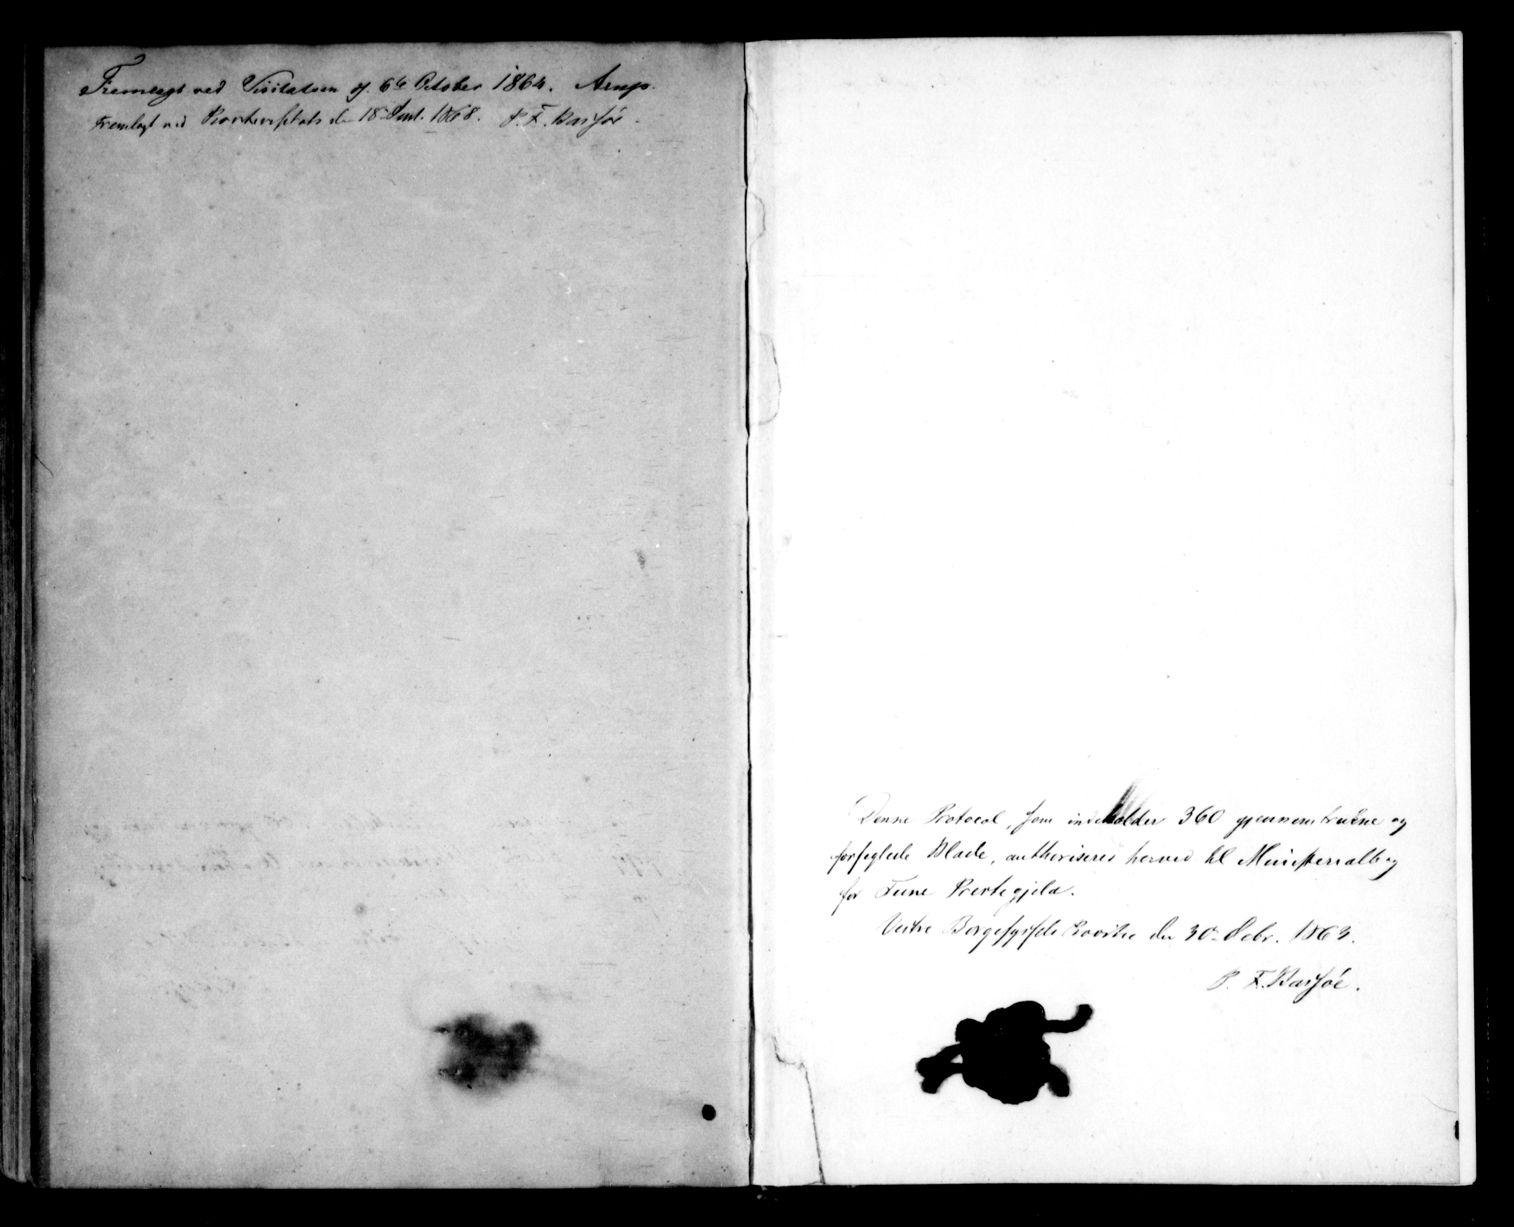 Fremlagt ved Visitatsen d. 6te October 1864. Arup.
Fremlagt ved Provstevisitats den 18de Sept. 1868. P. F. Bassøe.
Denne Protocol, som indeholder 360 gjennemtrukne og
forseglede Blade, authoriseres herved til Ministerialbog
for Tune Præstegjeld.
Vestre Borgesyssels Provstie den 30te Decbr. 1863.
P. F. Bassøe.